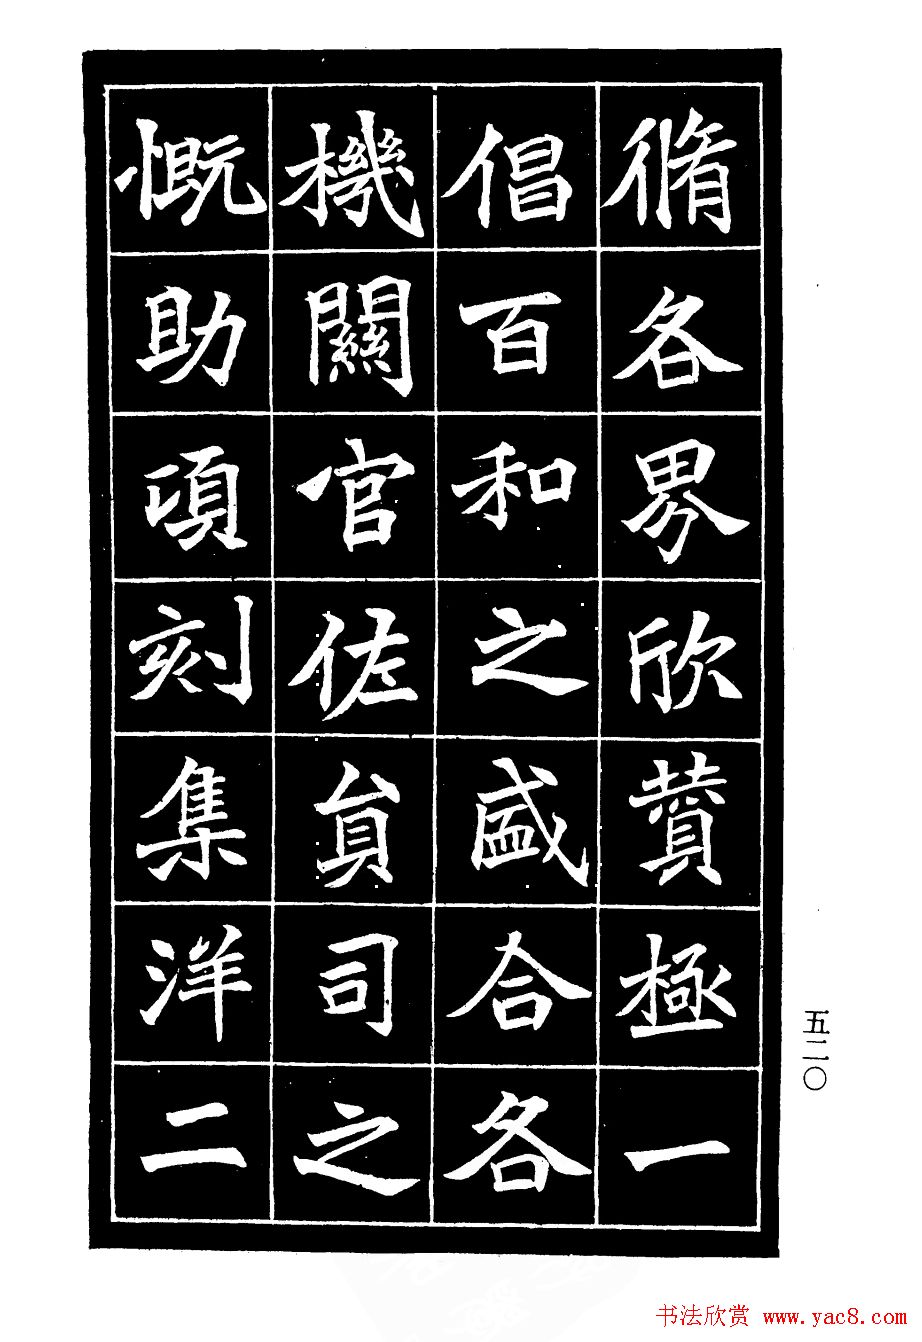 脩各界欣贊極一
倡百和之盛合各
機關官佐員司之
慨助項刻集洋二
五二〇
书法欣赏 www.yac8.com